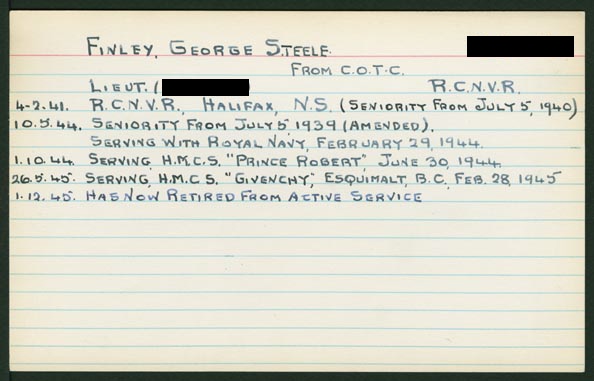 FINLEY, GEORGE STEELE.
FROM C.O.T.C.
LIEUT. ( R.C.N.V.R.
4-2.41. R.C.N.V.R., HALIFAX, N.S. (SENIORITY FROM JULY 5, 1940)
10.5.44. SENIORITY FROM JULY 5 1939 (AMENDED).
SERVING WITH ROYAL NAVY, FEBRUARY 29, 1944.
1.10.44. SERVING, H.M.C.S. "PRINCE ROBERT" JUNE 30, 1944
26.5.45. SERVING, H.M.C.S. "GIVENCHY", ESQUIMALT, B.C, FEB. 28, 1945
1.12.45. HAS NOW RETIRED FROM ACTIVE SERVICE